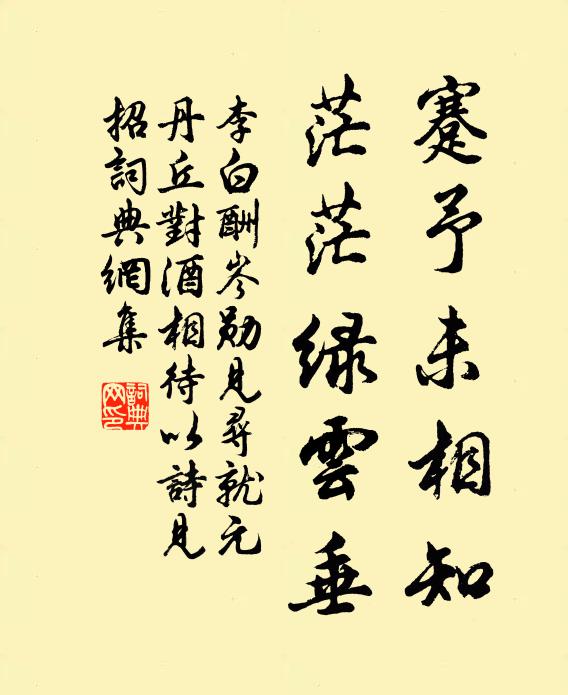 蹇予未相知
茫茫緑雲垂
李白酬岑勛見尋就元
丹丘對酒相待以詩見
招詞典網集
詞典網印